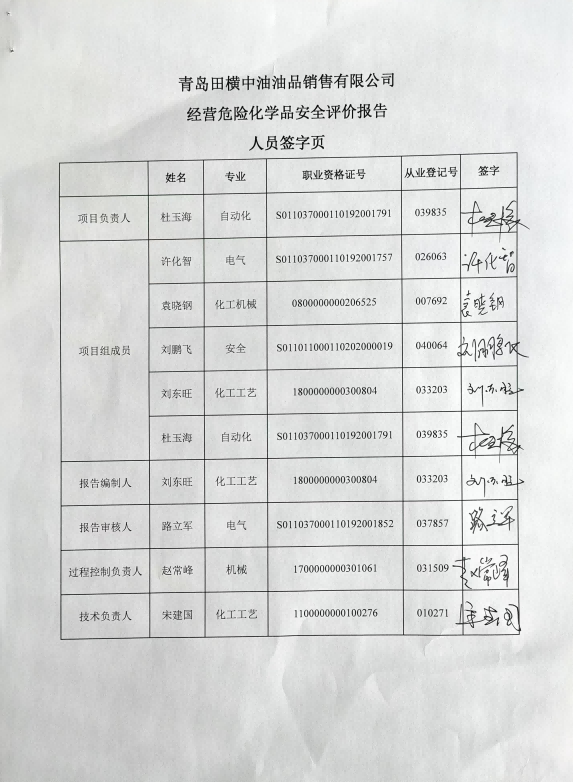 青岛田横中油油品销售有限公司
经营危险化学品安全评价报告
人员签字页
姓名 专业 职业资格证号 从业登记号 签字
项目负责人 杜玉海 自动化 S011037000110192001791 039835
项目组成员
许化智 电气 S011037000110192001757 026063 许化智
袁晓钢 化工机械 0800000000206525 007692 袁晓钢
刘鹏飞 安全 S011011000110202000019 040064 刘鹏飞
刘东旺 化工工艺 1800000000300804 033203 刘东旺
杜玉海 自动化 S011037000110192001791 039835
报告编制人 刘东旺 化工工艺 1800000000300804 033203 刘东旺
报告审核人 路立军 电气 S011037000110192001852 037857 路立军
过程控制负责人 赵常峰 机械 1700000000301061 031509 赵常峰
技术负责人 宋建国 化工工艺 1100000000100276 010271 宋建国